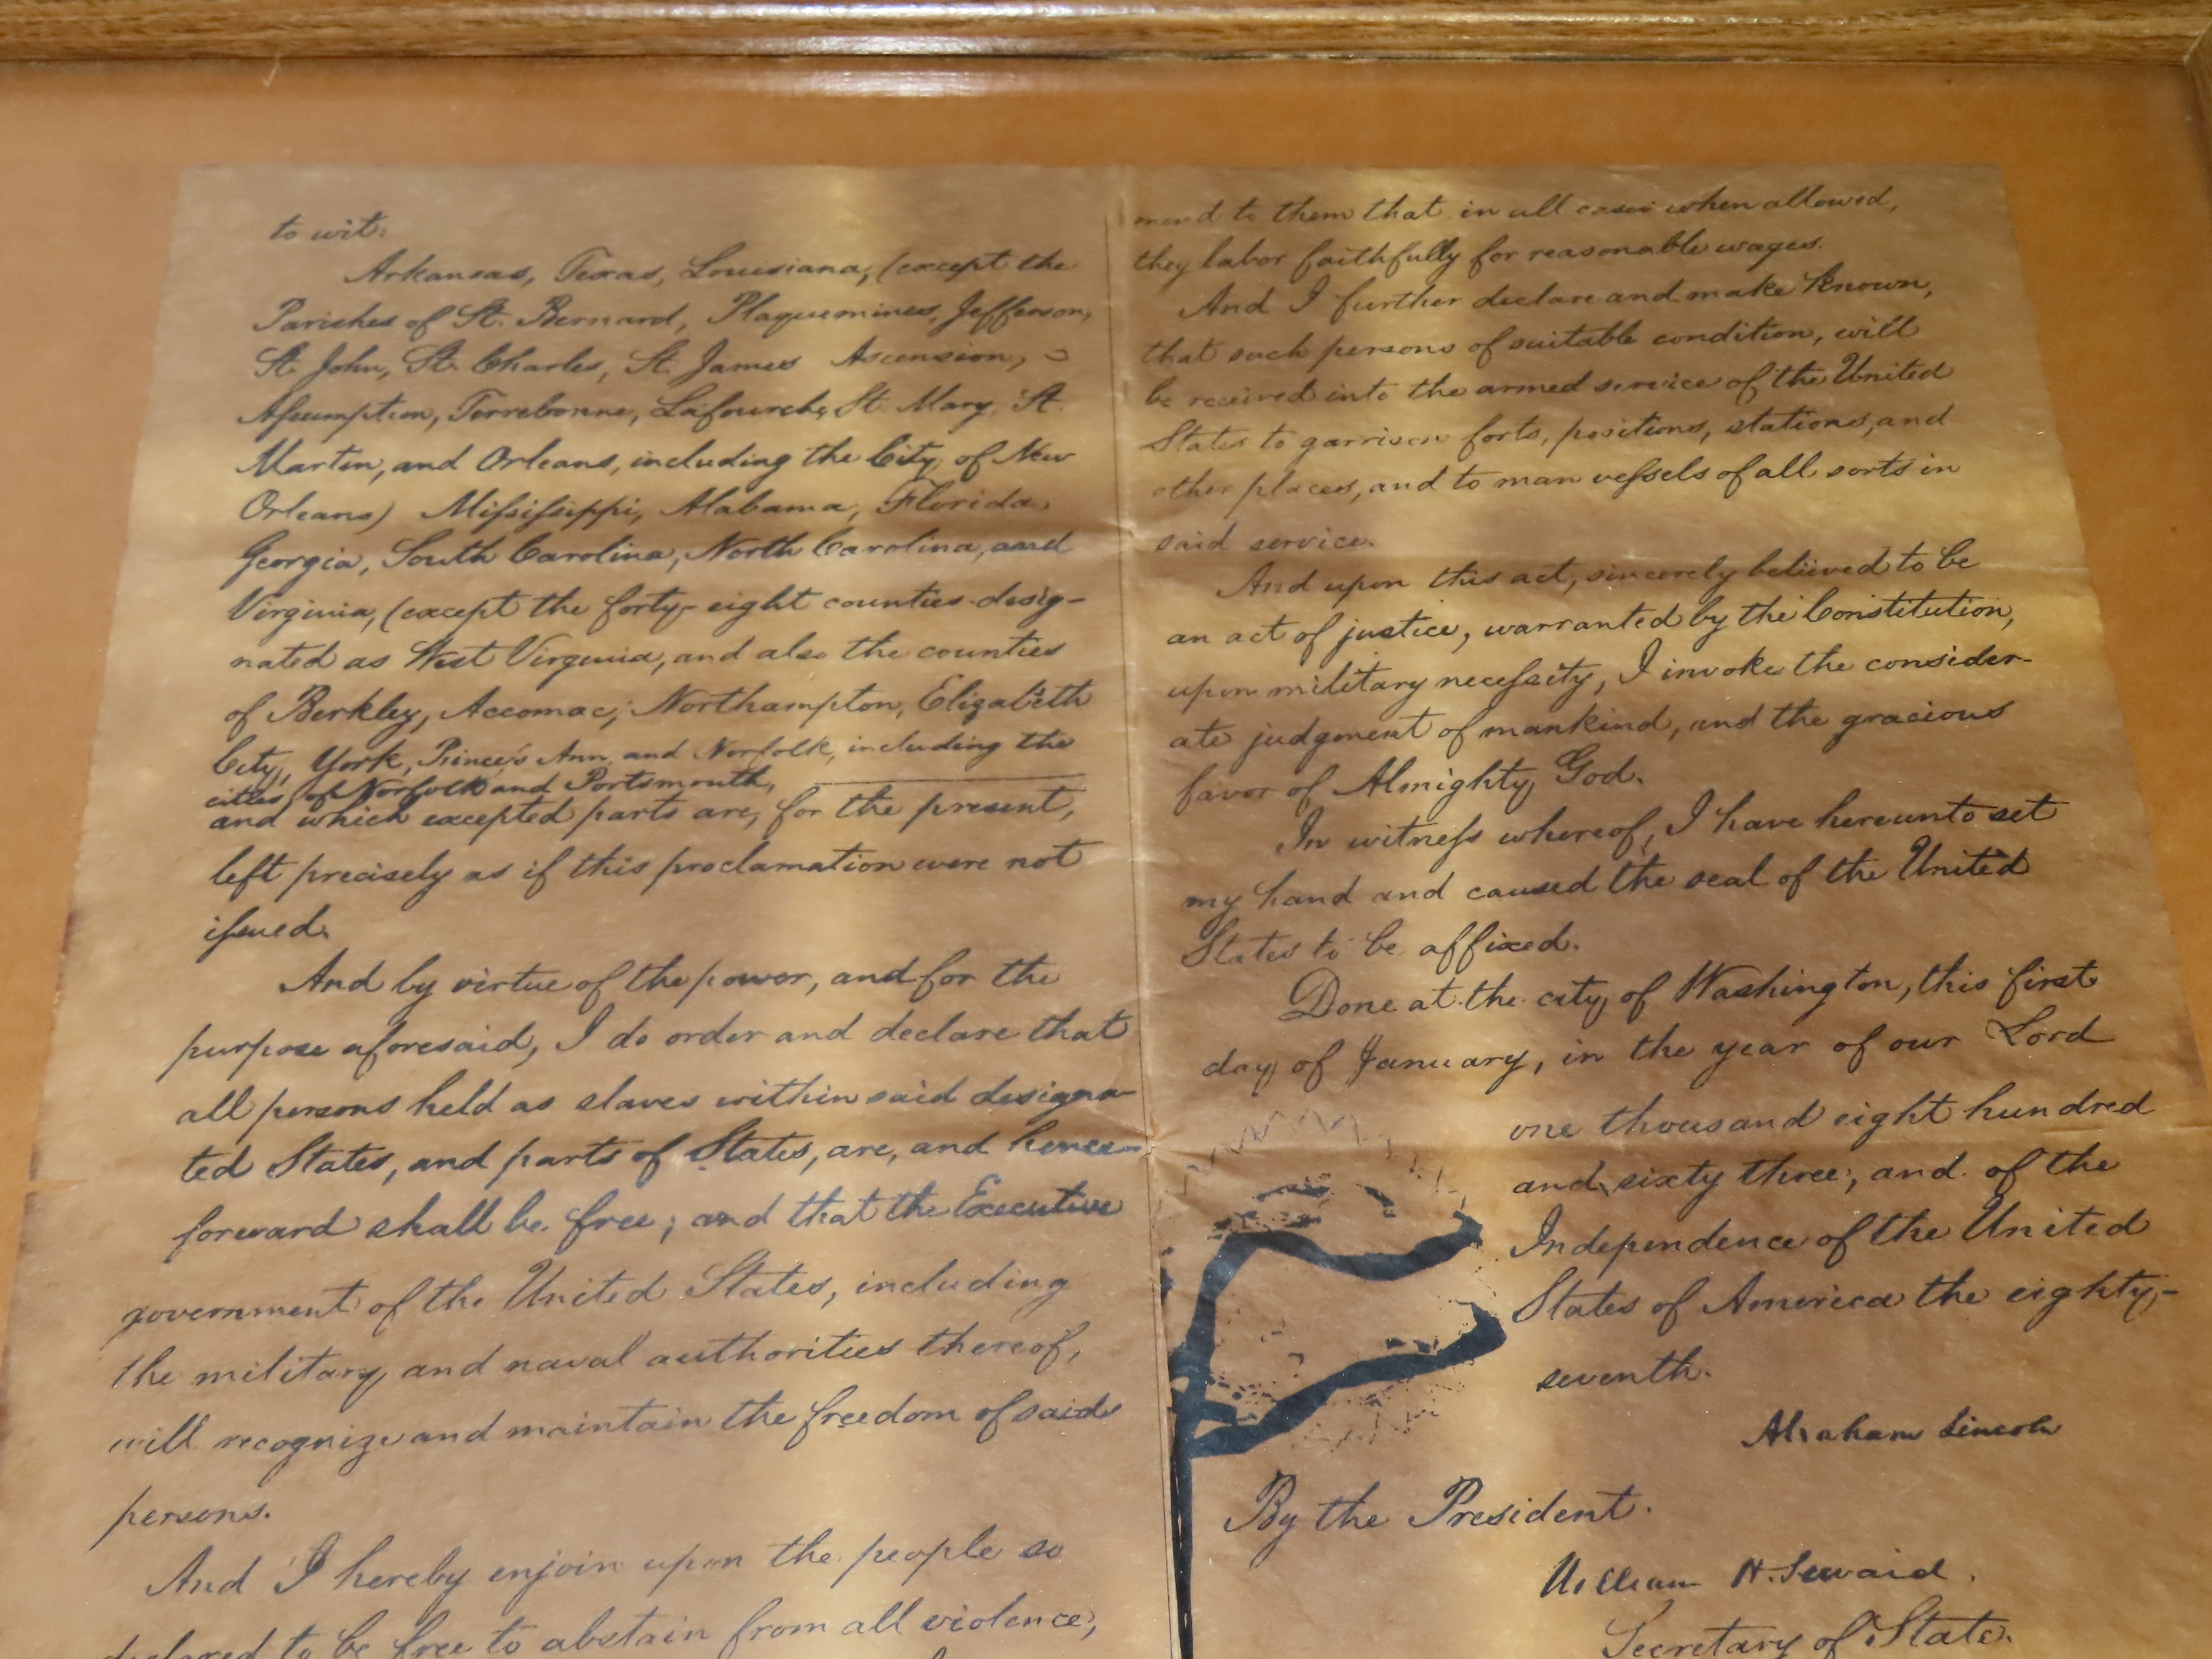 to wit:
Arkansas, Texas, Louisiana, (except the
Parishes of St. Bernard, Plaquemines, Jefferson,
St. John, St. Charles, St. James Ascension,
Assumption, Terrebonne, Lafourche, St. Mary, St.
Martin, and Orleans, including the City of New
Orleans) Mississippi, Alabama, Florida,
Georgia, South Carolina, North Carolina, and
Virginia, (except the forty-eight counties desig-
nated as West Virginia, and also the counties
of Berkley, Accomac, Northampton, Elizabeth
City, York, Princess Ann, and Norfolk, including the
cities of Norfolk and Portsmouth,
and which excepted parts are, for the present,
left precisely as if this proclamation were not
issued.
And by virtue of the power, and for the
purpose aforesaid, I do order and declare that
all persons held as slaves within said designa-
ted States, and parts of States, are, and hence-
forward shall be free; and that the Executive
government of the United States, including
the military and naval authorities thereof,
will recognize and maintain the freedom of said
persons.
And I hereby enjoin upon the people so
declared to be free to abstain from all violence,
mend to them that in all cases when allowed,
they labor faithfully for reasonable wages.
And I further declare and make known,
that such persons of suitable condition, will
be received into the armed service of the United
States to garrison forts, positions, stations, and
other places, and to man vessels of all sorts in
said service.
And upon this act, sincerely believed to be
an act of justice, warranted by the Constitution,
upon military necessity, I invoke the consider-
ate judgment of mankind, and the gracious
favor of Almighty God.
In witness whereof, I have hereunto set
my hand and caused the seal of the United
States to be affixed.
Done at the city of Washington, this first
day of January, in the year of our Lord
one thousand eight hundred
and sixty three, and of the
Independence of the United
States of America the eighty-
seventh.
Abraham Lincoln
By the President.
William H. Seward.
Secretary of State.